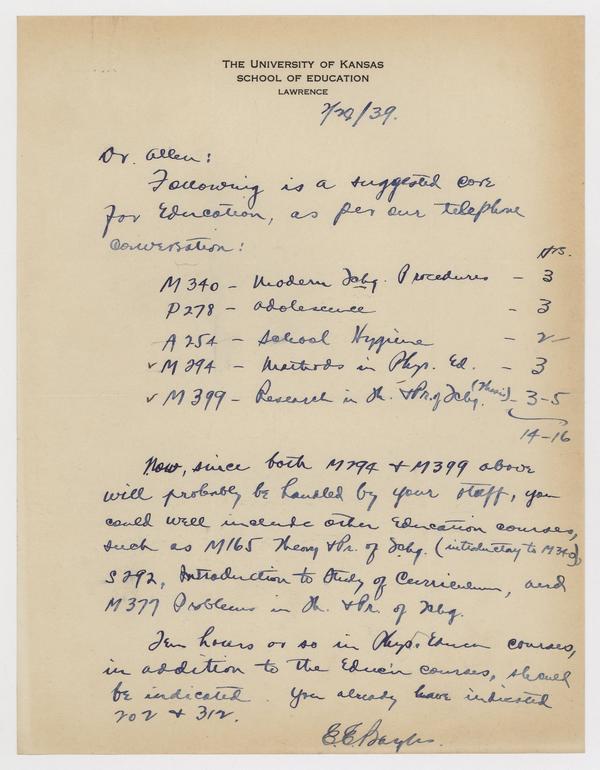 THE UNIVERSITY OF KANSAS
SCHOOL OF EDUCATION
LAWRENCE
2/22/39.
Dr. Allen:
Following is a suggested core
for Education, as per our telephone
conversation:
Hrs.
M 340 – Modern Tchg. Procedures – 3
P278 – Adolescence – 3
A 254 – School Hygiene – 2
✓ M 294 – Methods in Phys. Ed. – 3
✓ M 399 – Research in Th. & Pr. of Tchg. (Thesis) – 3-5
14-16
Now, since both M294 & M399 above
will probably be handled by your staff, you
could well include other Education courses,
such as M165 Theory & Pr. of Tchg. (introductory to M340),
S292, Introduction to Study of Curriculum, and
M377 Problems in Th. & Pr. of Tchg.
Ten hours or so in Phys. Educn courses,
in addition to the Educ'n courses, should
be indicated. You already have indicated
202 & 312.
E.E. Bayles.